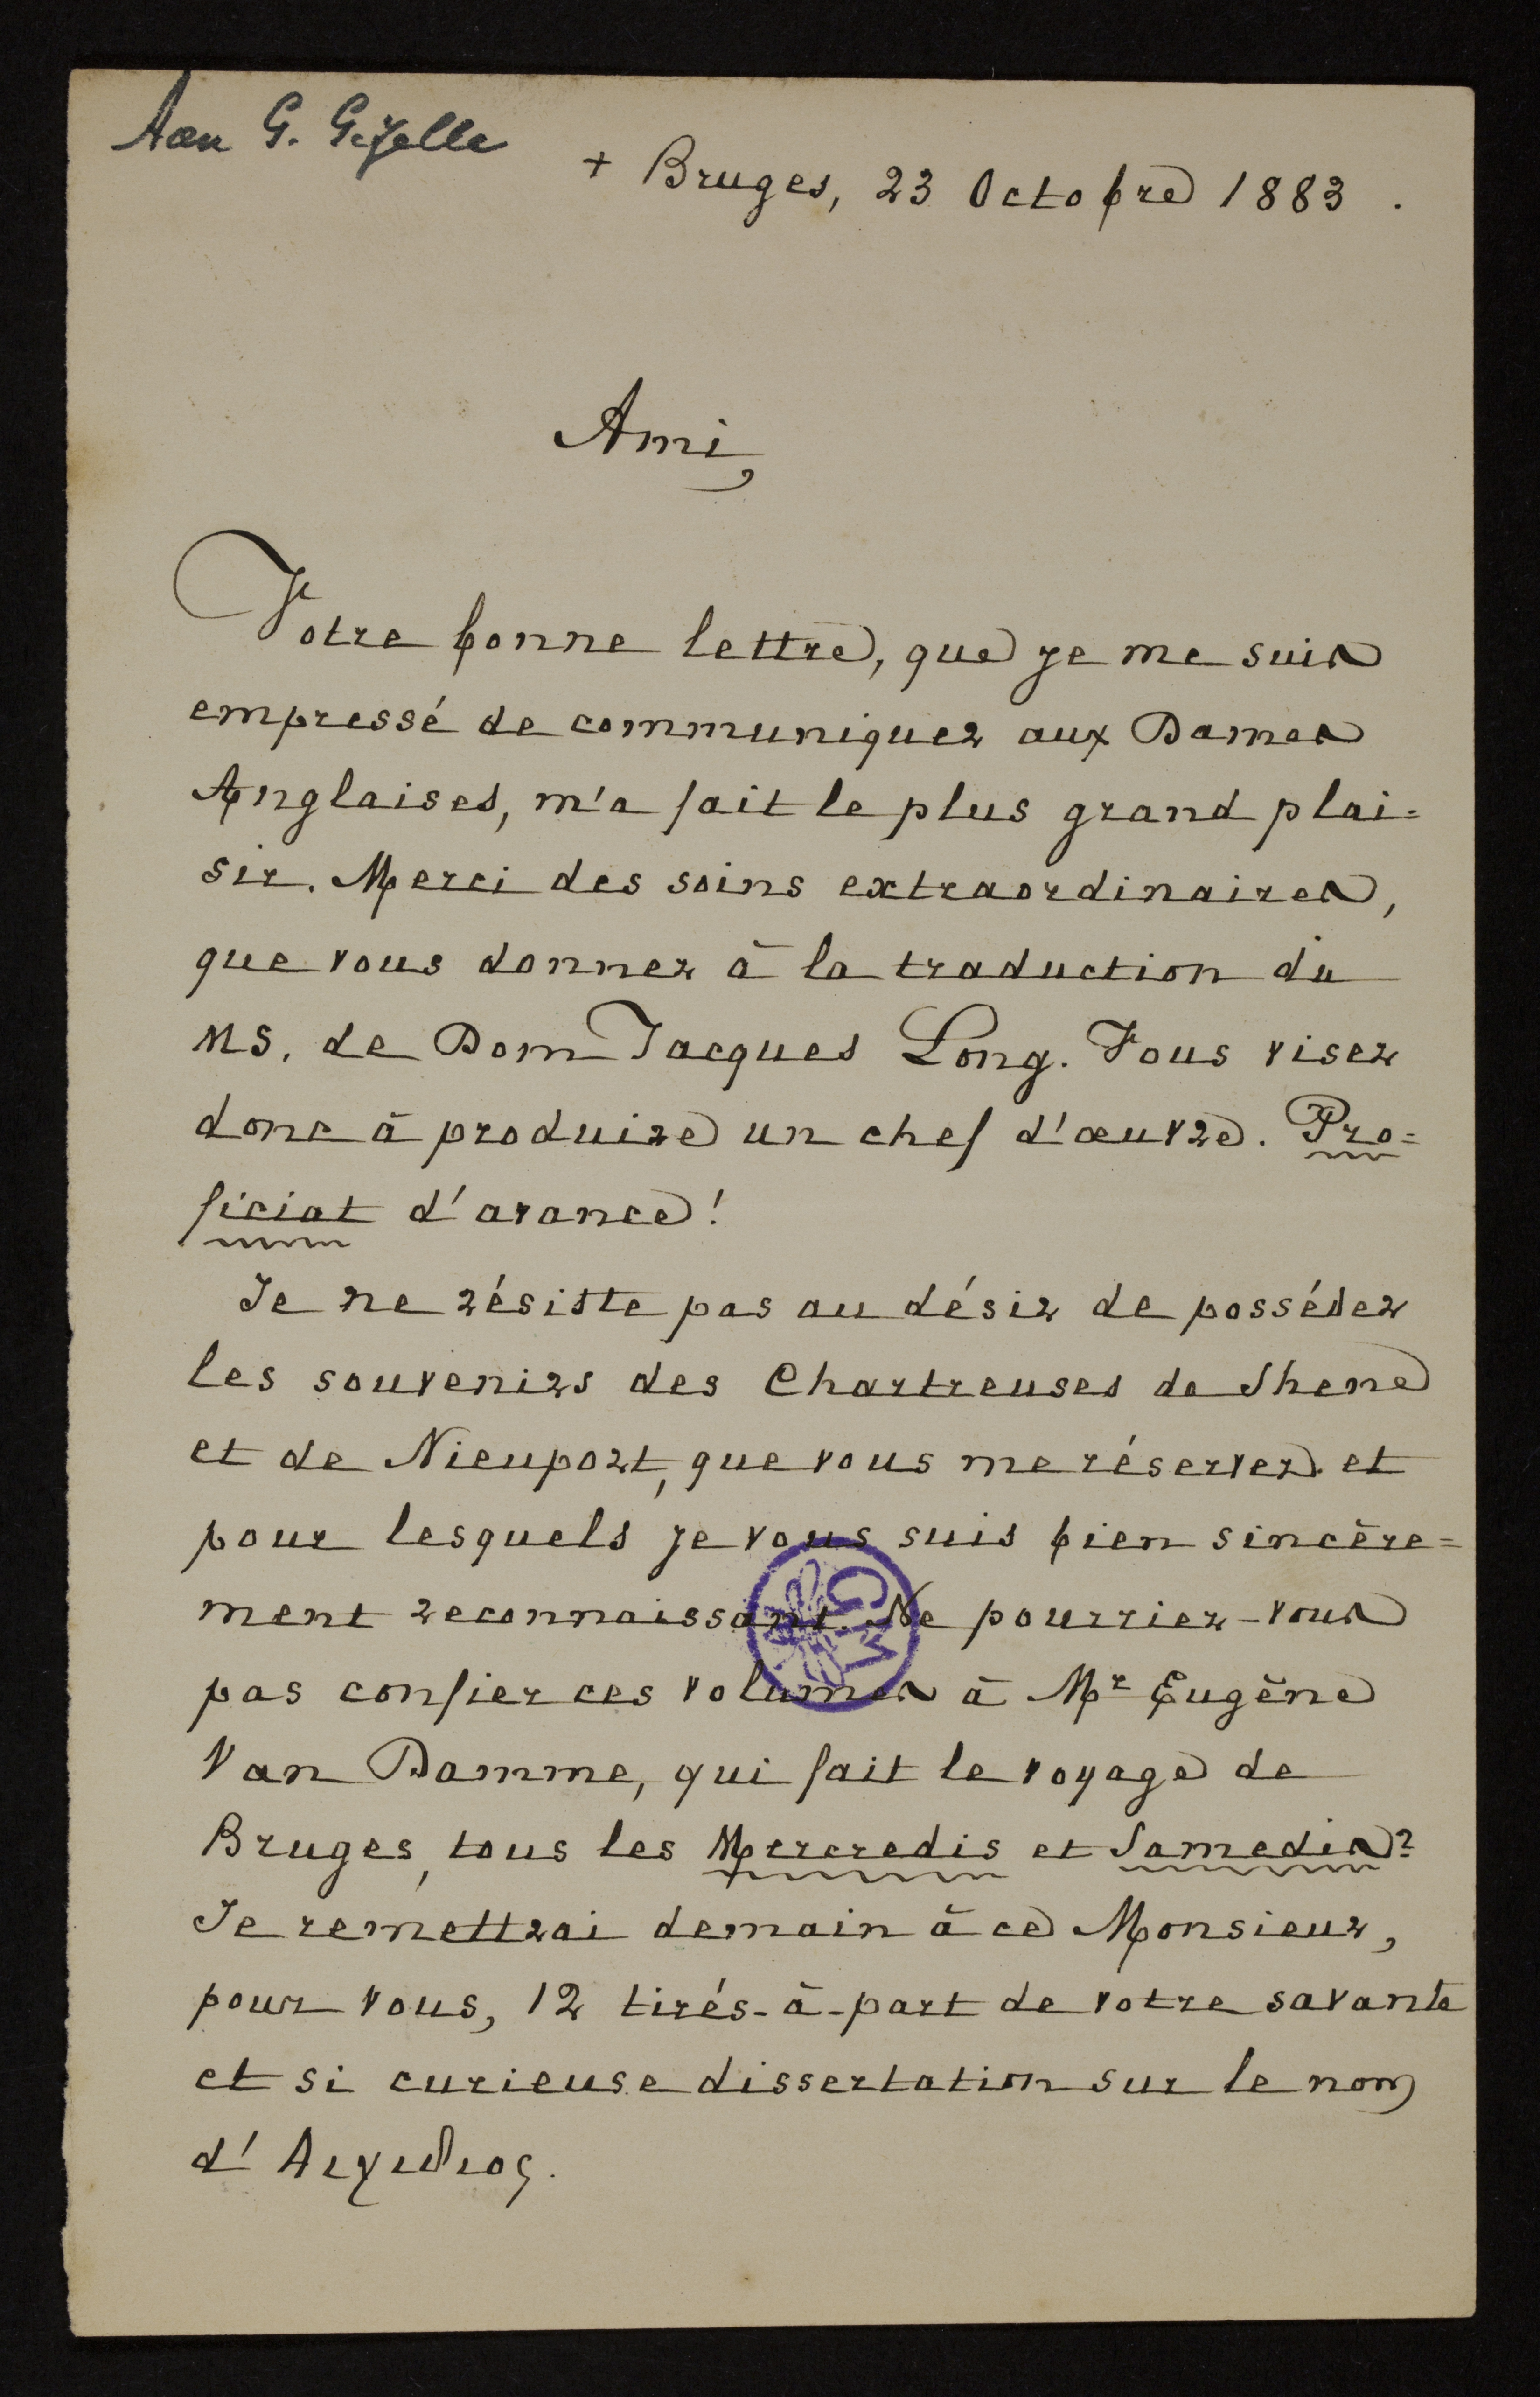 Aan G. Gezelle
+ Bruges, 23 Octobre 1883.
Ami,
Votre bonne lettre, que je me suis
empressé de communiquer aux Dames
Anglaises, m'a fait le plus grand plai=
sir. Merci des soins extraordinaires,
que vous donnez à la traduction du
MS. de Dom Jacques Long. Vous visez
donc à produire un chef d'œuvre. Pro=
ficiat d'avance!
Je ne résiste pas au désir de posséder
les souvenirs des Chartreuses de Shene
et de Nieuport, que vous me réservez et
pour lesquels je vous suis bien sincère=
ment reconnaissant. Ne pourriez-vous
pas confier ces volumes à Mr Eugène
Van Damme, qui fait le voyage de
Bruges, tous les Mercredis et Samedis?
Je remettrai demain à ce Monsieur,
pour vous, 12 tirés-à-part de votre savante
et si curieuse dissertation sur le nom
d'Αιγιδιος.